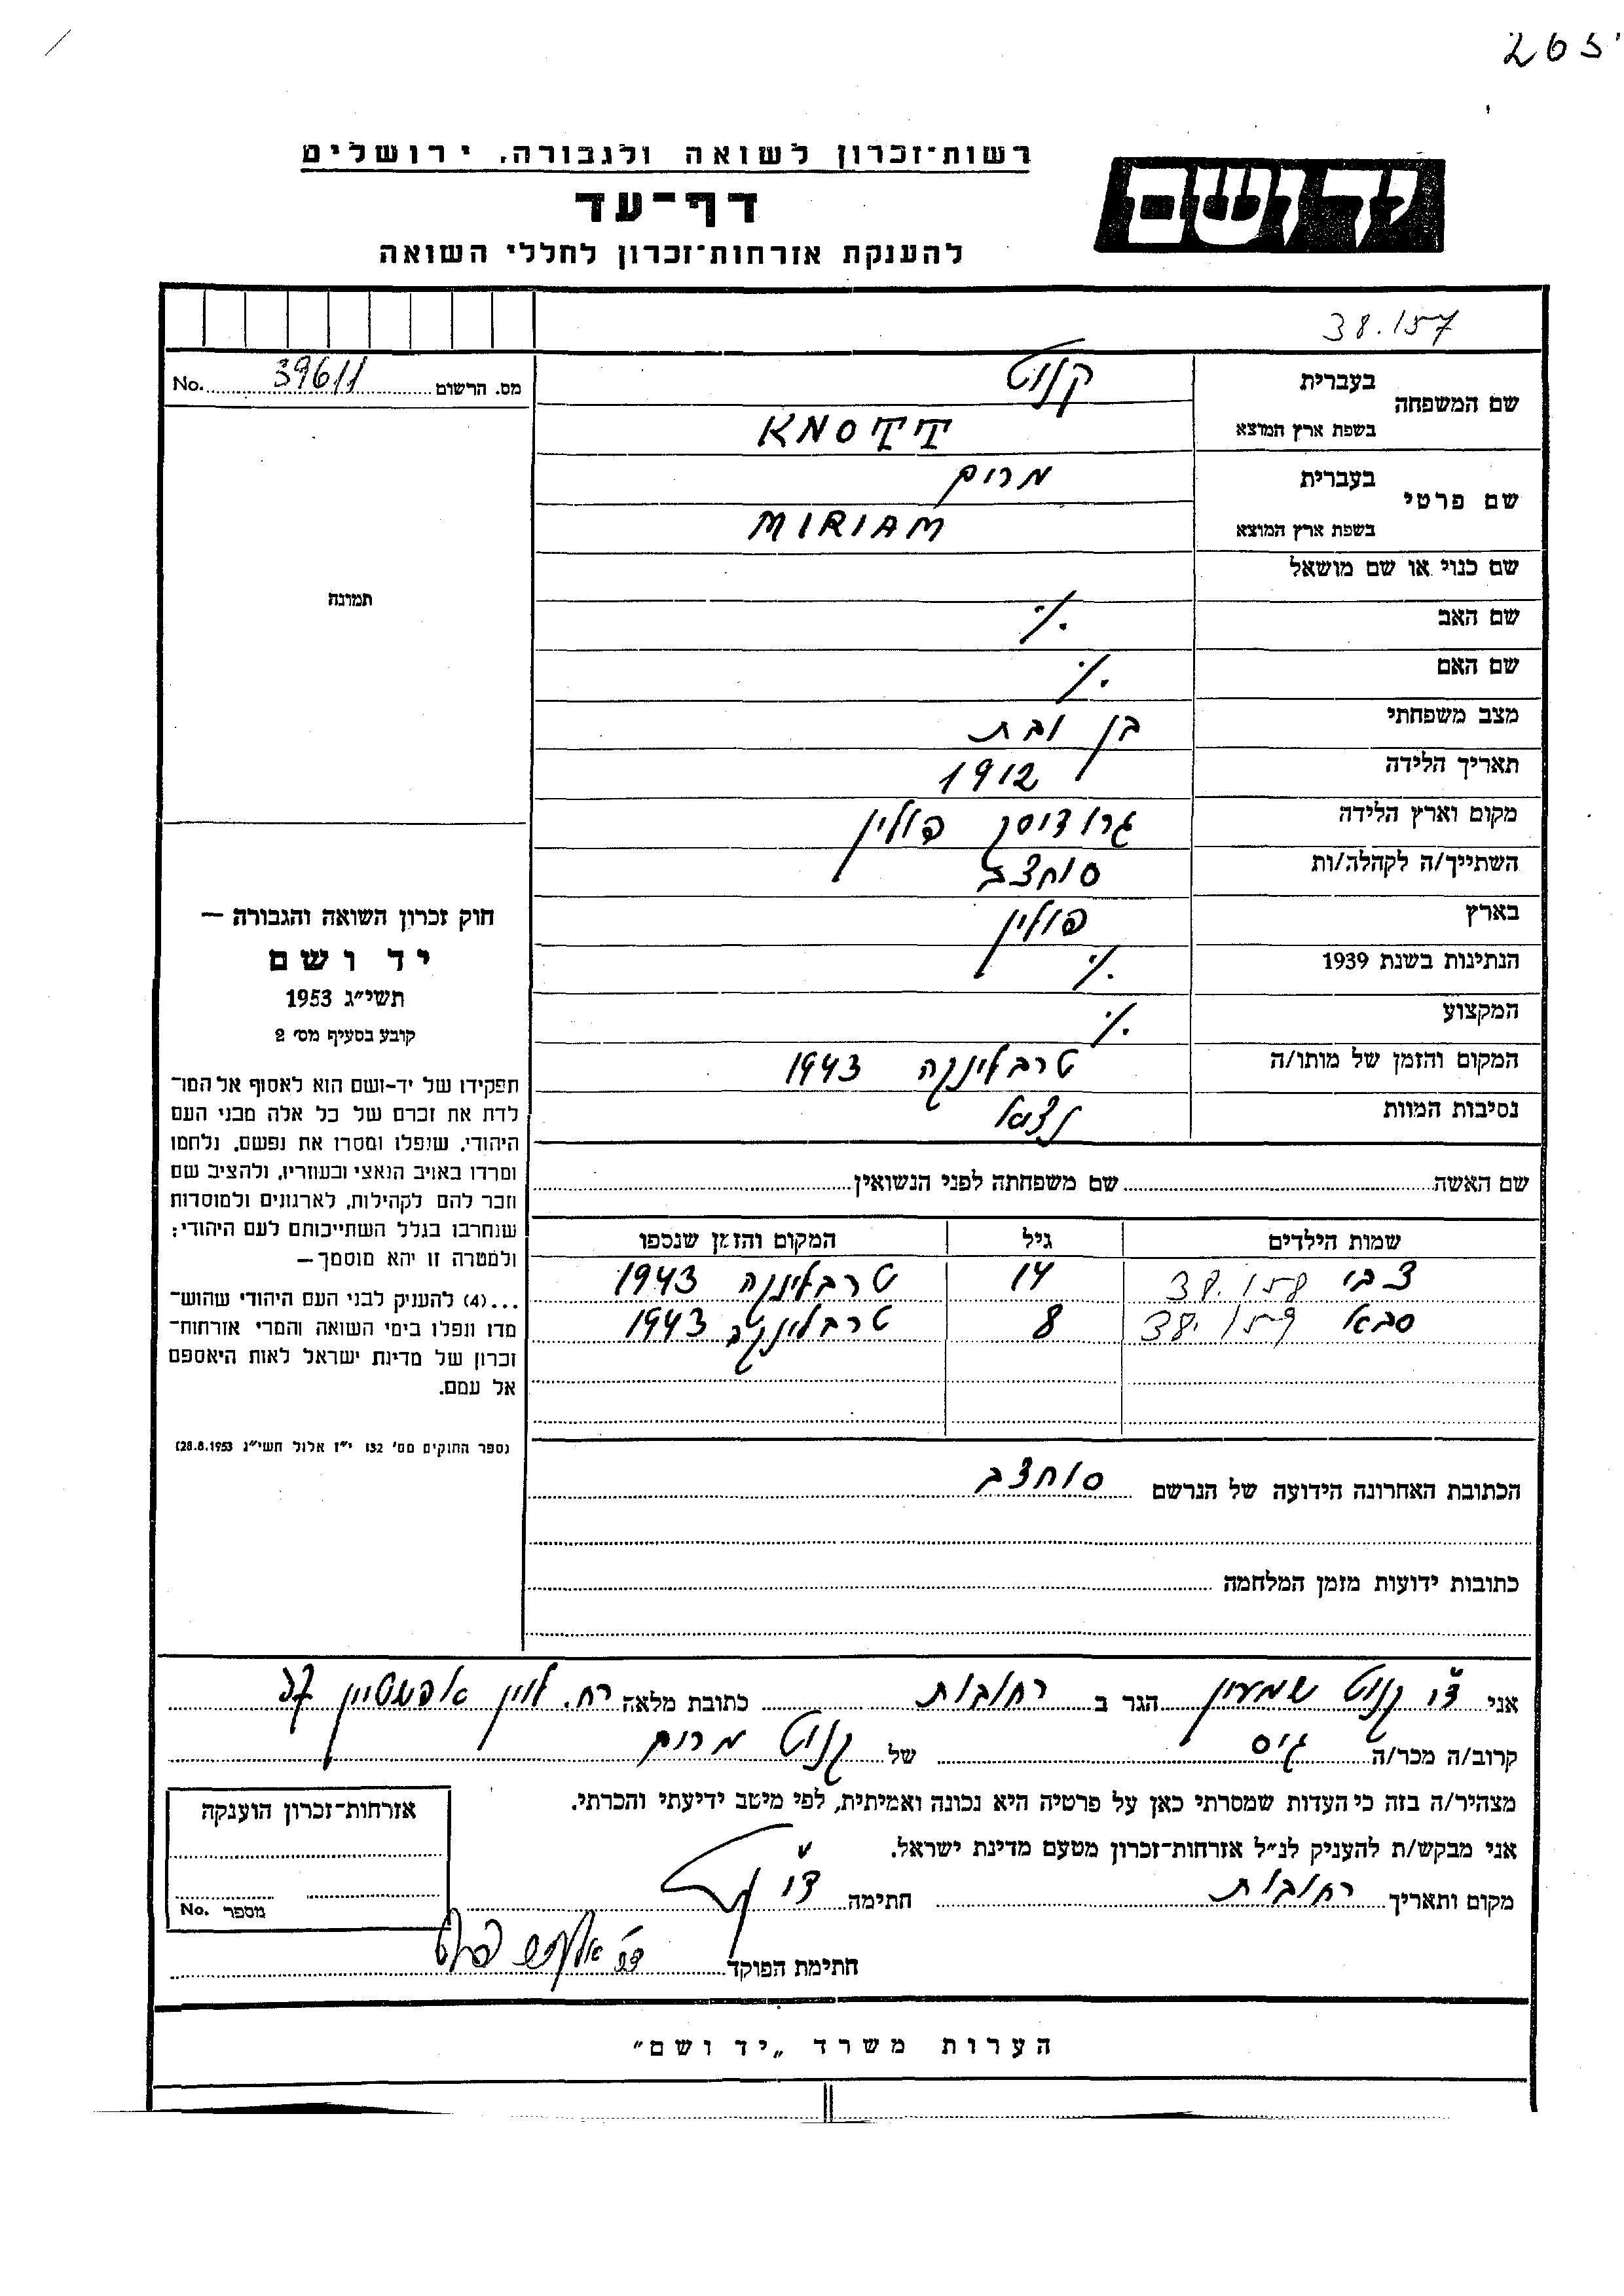 265
רשות־זכרון לשואה ולגבורה, ירושלים
יד ושם
דף־עד
להענקת אזרחות־זכרון לחללי השואה
38.157
שם המשפחה בעברית קנוט
בשפת ארץ המוצא KNOTT
שם פרטי בעברית מרים
בשפת ארץ המוצא MIRIAM
שם כנוי או שם מושאל
שם האב ./.
שם האם ./.
מצב משפחתי בן ובת
תאריך הלידה 1912
מקום וארץ הלידה גרודזיסק פולין
השתייך/ה לקהלה/ות סוחצב
בארץ פולין
הנתינות בשנת 1939 ./.
המקצוע ./.
המקום והזמן של מותו/ה טרבלינקה 1943
נסיבות המוות
שם האשה שם משפחתה לפני הנשואין
שמות הילדים גיל המקום והזמן שנספו
צבי 38.158 14 טרבלינקה 1943
סבא 38.159 8 טרבלינקה 1943
הכתובת האחרונה הידועה של הנרשם סוחצב
כתובות ידועות מזמן המלחמה
מס. הרשום 39611 No.
תמונה
חוק זכרון השואה והגבורה —
יד ושם
תשי״ג 1953
קובע בסעיף מס׳ 2
תפקידו של יד-ושם הוא לאסוף אל המו־
לדת את זכרם של כל אלה מבני העם
היהודי, שנפלו ומסרו את נפשם, נלחמו
ומרדו באויב הנאצי ובעוזריו, ולהציב שם
וזכר להם לקהילות, לארגונים ולמוסדות
שנחרבו בגלל השתייכותם לעם היהודי;
ולמטרה זו יהא מוסמך —
...(4) להעניק לבני העם היהודי שהוש־
מדו ונפלו בימי השואה והמרי אזרחות־
זכרון של מדינת ישראל לאות היאספם
אל עמם.
(ספר החוקים מס׳ 132 י״ז אלול תשי״ג 28.8.1953)
אני קנוט שמעון הגר ב רחובות כתובת מלאה רח. לוין אפשטיין 37
קרוב/ה מכר/ה גיס של קנוט מרים
מצהיר/ה בזה כי העדות שמסרתי כאן על פרטיה היא נכונה ואמיתית, לפי מיטב ידיעתי והכרתי.
אני מבקש/ת להעניק לנ״ל אזרחות־זכרון מטעם מדינת ישראל.
מקום ותאריך רחובות חתימה
חתימת הפוקד
אזרחות־זכרון הוענקה
מספר No.
הערות משרד „יד ושם״